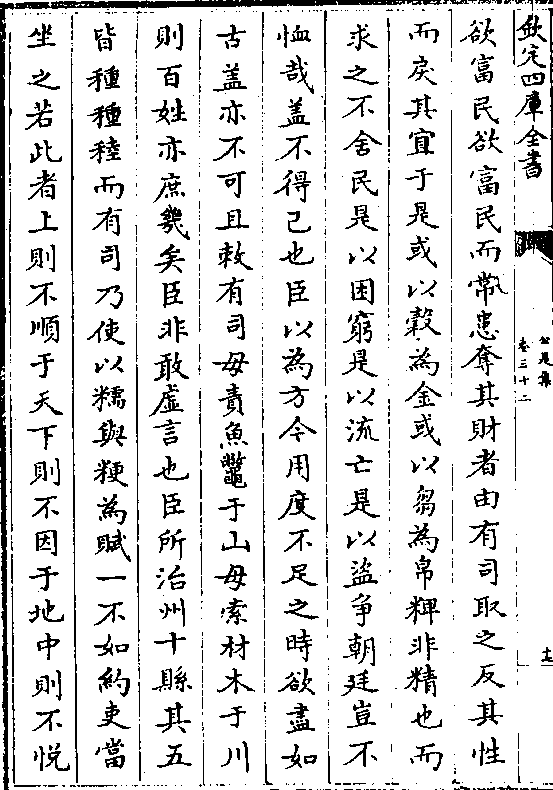 欽定四庫全書
公是集
卷三十二
十二
欲富民欲富民而常患奪其財者由有司取之反其性
而戾其宜于是或以穀為金或以芻為帛粺非精也而
求之不舍民是以困窮是以流亡是以盜爭朝廷豈不
恤哉盖不得已也臣以為方今用度不足之時欲盡如
古盖亦不可且敕有司毋責魚鼈于山毋索材木于川
則百姓亦庶幾矣臣非敢虛言也臣所治州十縣其五
皆種種稑而有司乃使以糯與粳為賦一不如約吏當
坐之若此者上則不順于天下則不因于地中則不悅